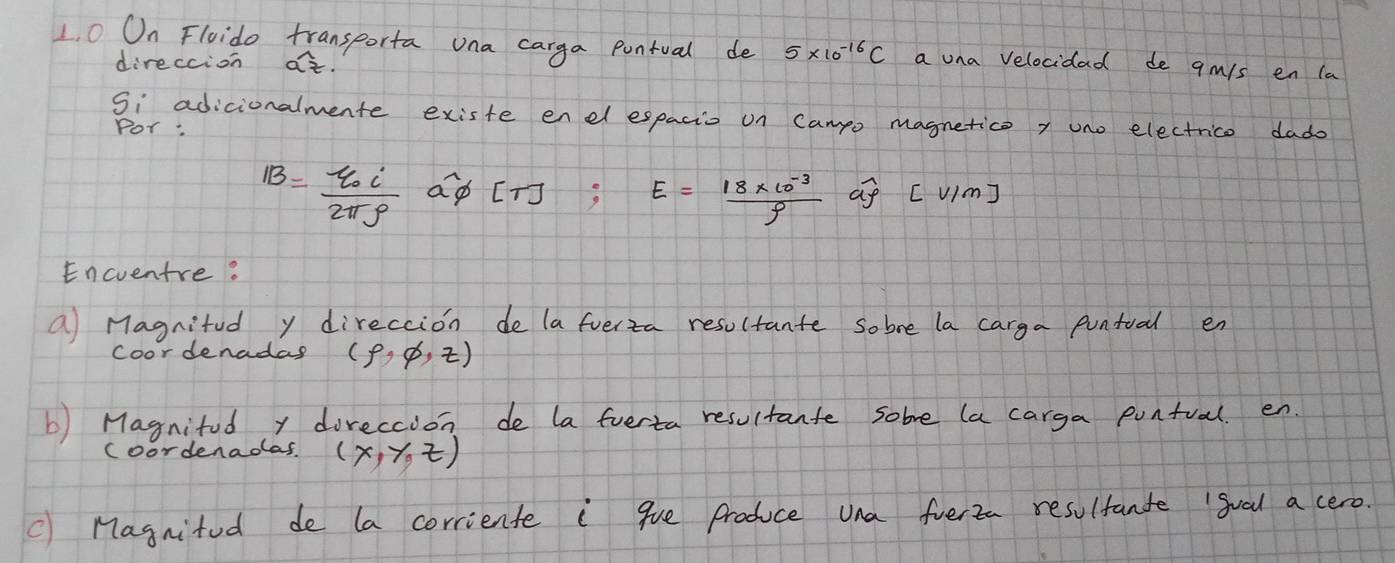 1.0 Un Fluido transporta una carga puntual de 5×10⁻¹⁶C a una velocidad de 9m/s en la
dirección âz.
Si adicionalmente existe en el espacio un campo magnetico y uno electrico dado
Por:
B = μ₀ i / 2πρ âϕ [T] ; E = 18×10⁻³ / ρ âρ [V/m]
Encuentre:
a) Magnitud y dirección de la fuerza resultante sobre la carga puntual en
coordenadas (ρ, ϕ, z)
b) Magnitud y dirección de la fuerza resultante sobe la carga puntual. en.
coordenadas. (x, y, z)
c) Magnitud de la corriente i que produce una fuerza resultante igual a cero.